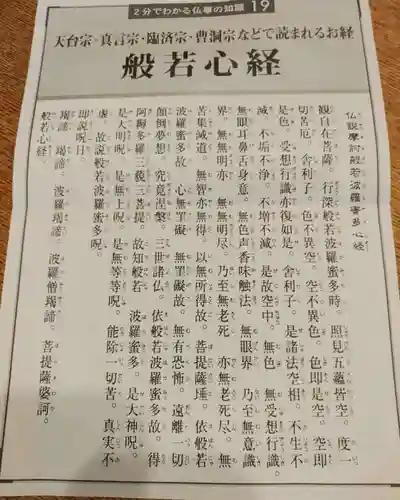 2分でわかる仏事の知識 19
天台宗・真言宗・臨済宗・曹洞宗などで読まれるお経
般若心経
仏説摩訶般若波羅蜜多心経
観自在菩薩。行深般若波羅蜜多時。照見五蘊皆空。度一
切苦厄。舎利子。色不異空。空不異色。色即是空。空即
是色。受想行識亦復如是。舎利子。是諸法空相。不生不
滅。不垢不浄。不増不減。是故空中。無色。無受想行識。
無眼耳鼻舌身意。無色声香味触法。無眼界。乃至無意識
界。無無明亦。無無明尽。乃至無老死。亦無老死尽。無
苦集滅道。無智亦無得。以無所得故。菩提薩埵。依般若
波羅蜜多故。心無罣礙。無罣礙故。無有恐怖。遠離一切
顛倒夢想。究竟涅槃。三世諸仏。依般若波羅蜜多故。得
阿耨多羅三藐三菩提。故知般若。波羅蜜多。是大神呪。
是大明呪。是無上呪。是無等等呪。能除一切苦。真実不
虚。故説般若波羅蜜多呪。
即説呪曰。
羯諦。羯諦。波羅羯諦。波羅僧羯諦。菩提薩婆訶。
般若心経。